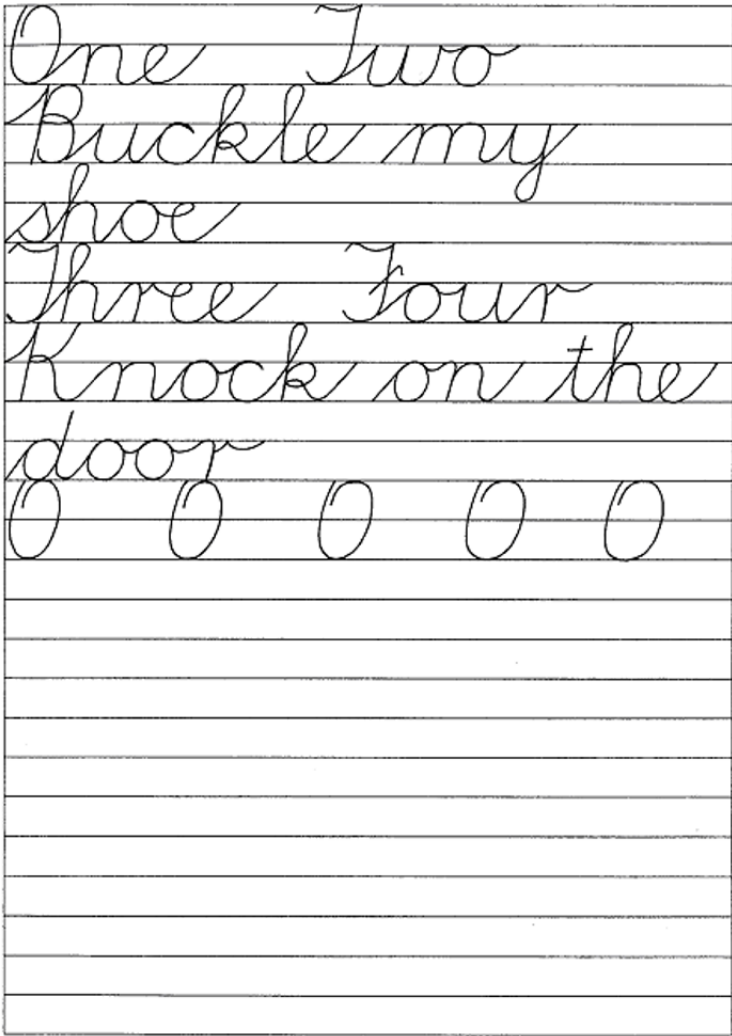 One Two
Buckle my
shoe
Three Four
Knock on the
door
O O O O O